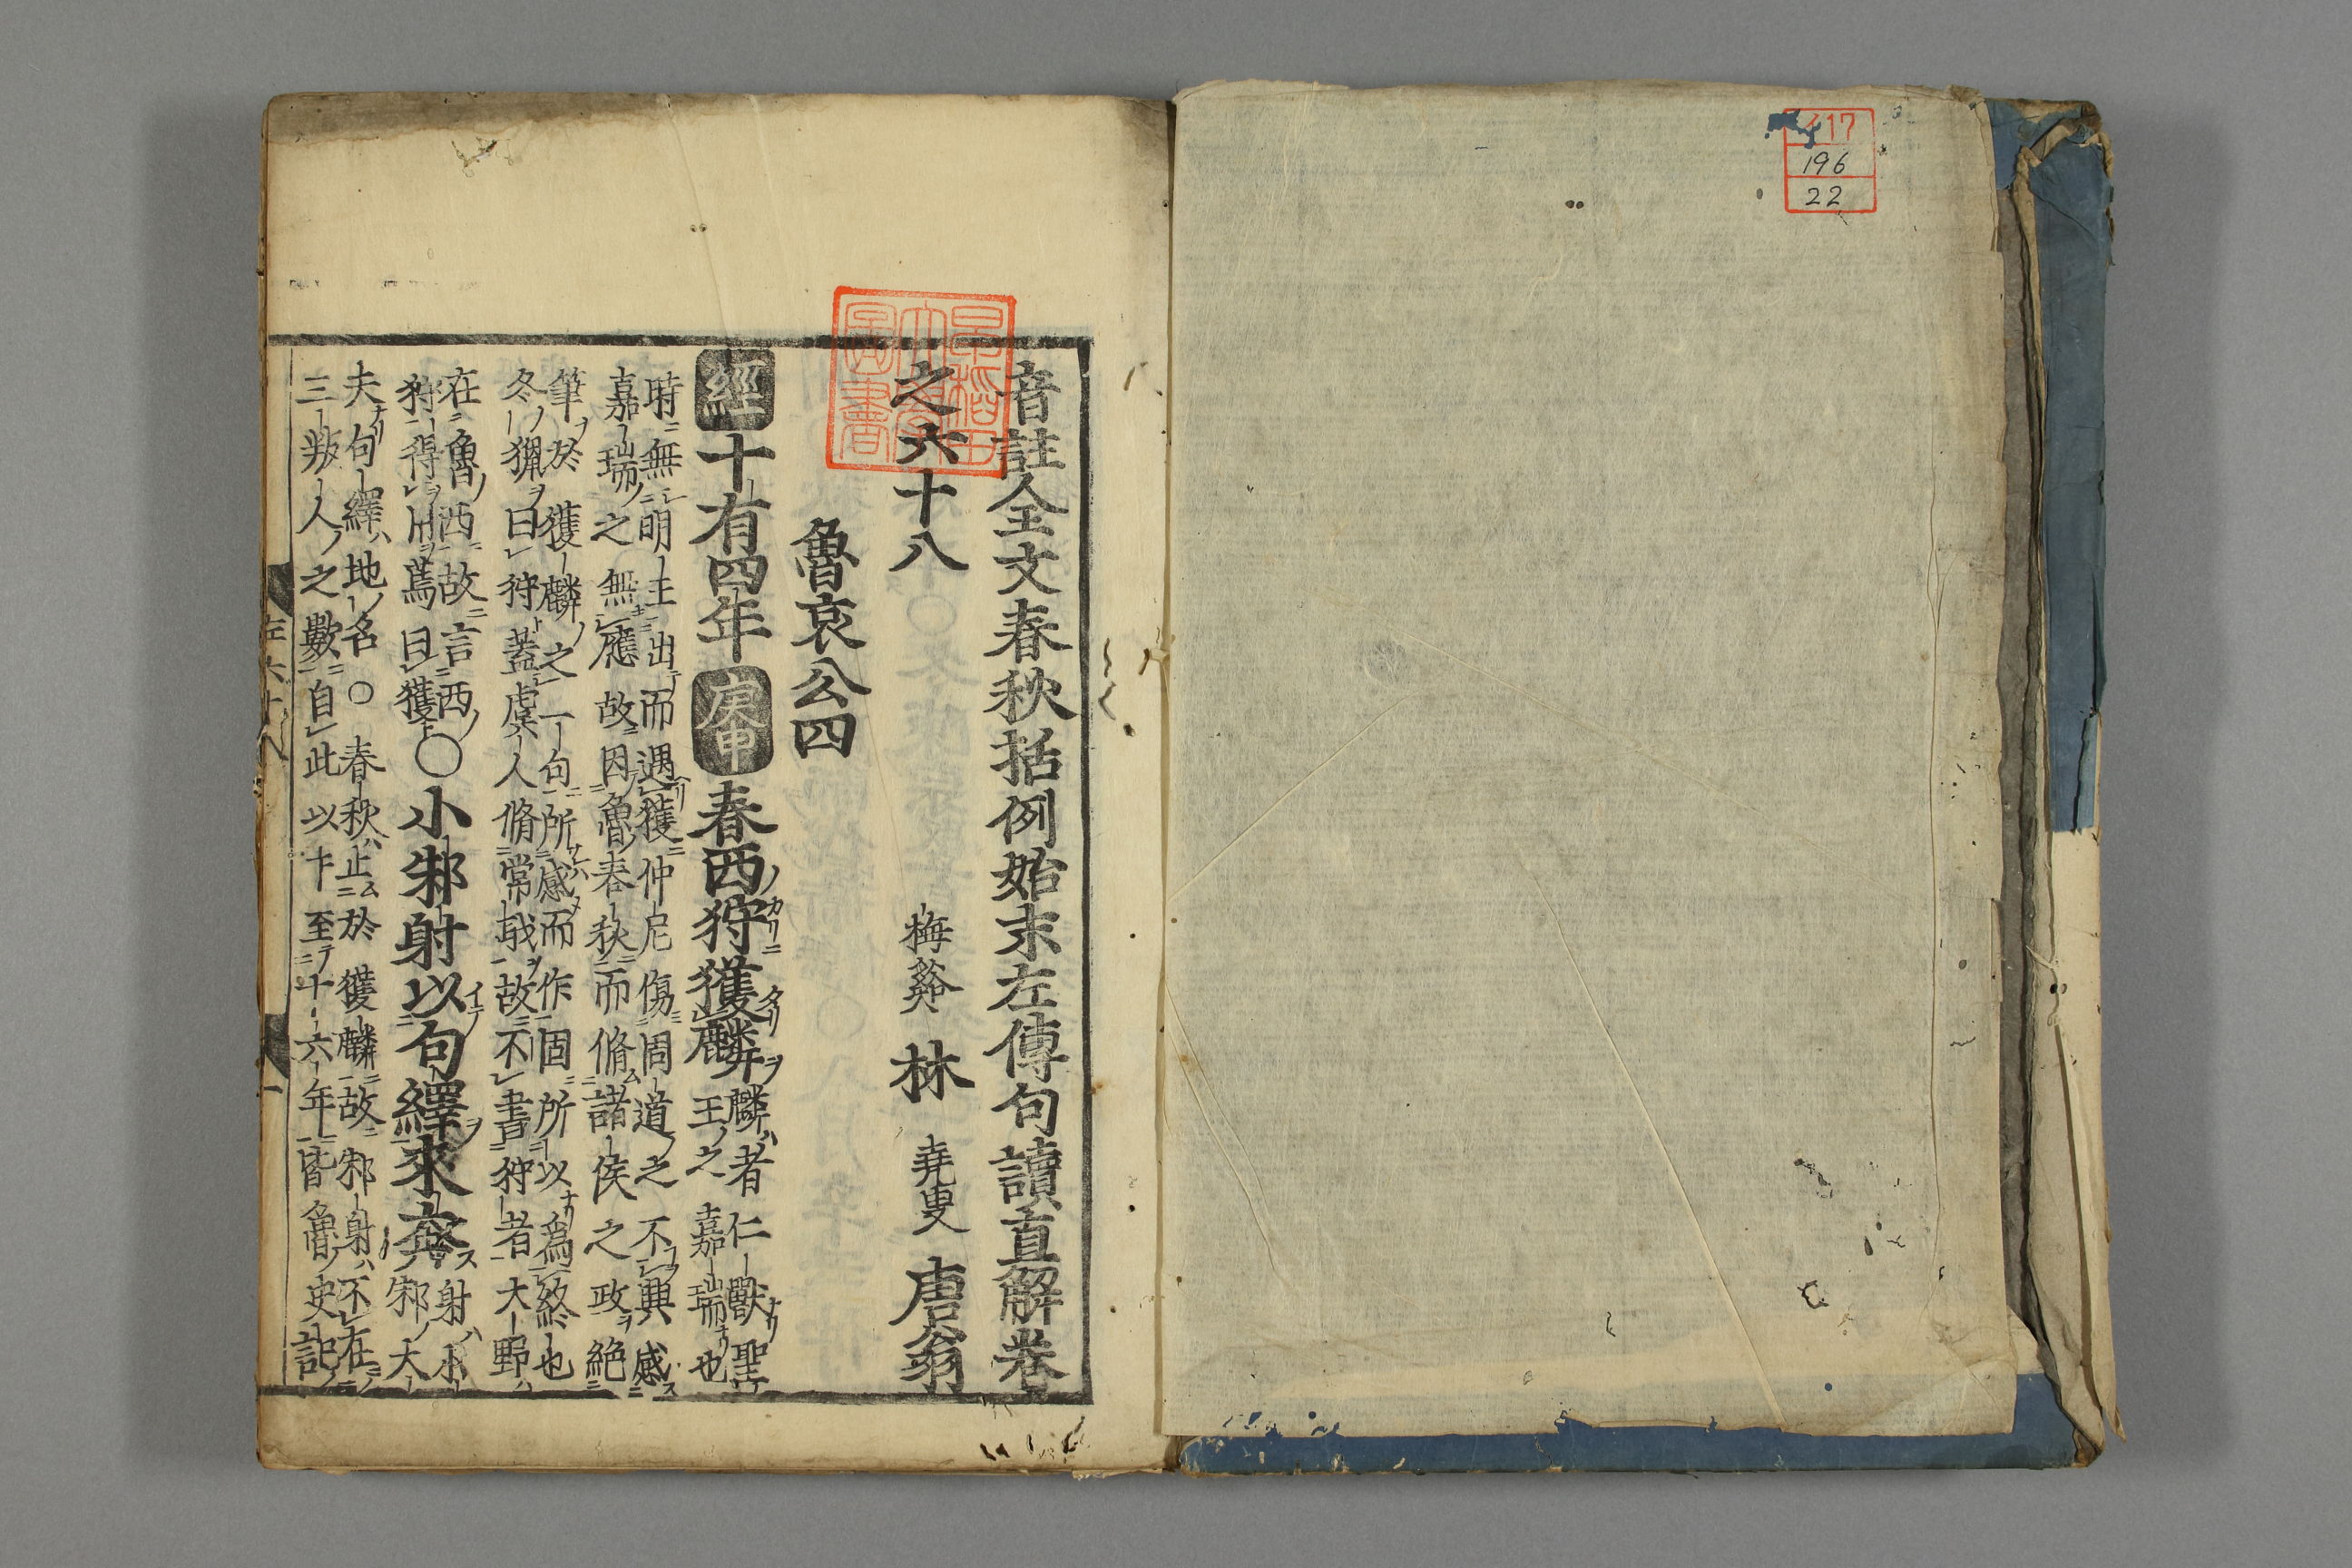 イ17
196
22
音註全文春秋括例始末左傳句讀直解卷
之六十八　梅谿　林　堯叟　唐翁
早稻田大學圖書
魯哀公四
經十有四年庚申春西狩獲麟麟者仁獸聖
王之嘉瑞也
時無明王出而遇獲仲尼傷周道之不興感
嘉瑞之無應故因魯春秋而脩諸侯之政絶
筆於獲麟之一句所感而作固所以爲終也
冬獵曰狩蓋虞人脩常職故不書狩者大野
在魯西故言西
狩得用焉曰獲〇小邾射以句繹來奔射小
邾大
夫句繹地名〇春秋止於獲麟故邾射不在
三叛人之數自此以下至十六年皆魯史記
左六十八
一